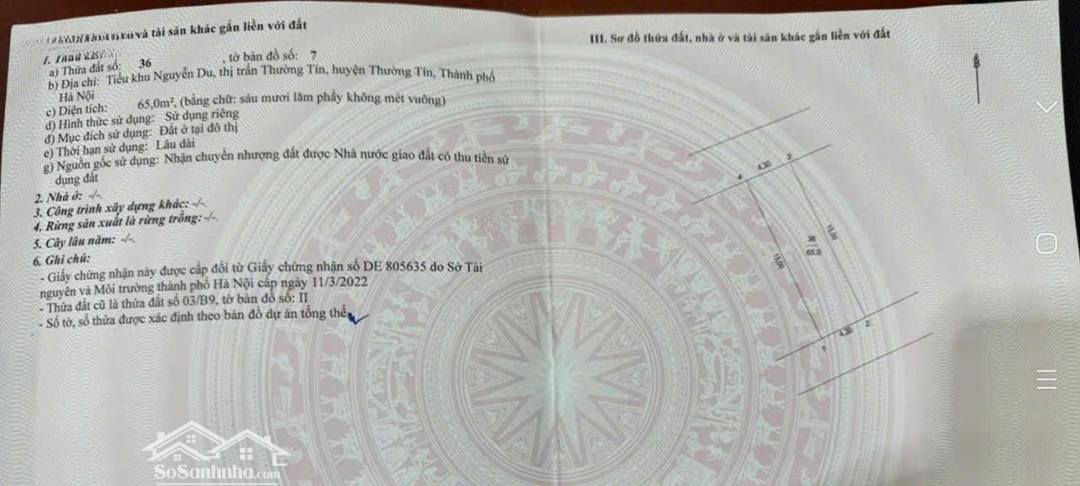 và tài sản khác gắn liền với đất
a) Thửa đất số: 36 , tờ bản đồ số: 7
b) Địa chỉ: Tiểu khu Nguyễn Du, thị trấn Thường Tín, huyện Thường Tín, Thành phố
Hà Nội
c) Diện tích: 65,0m², (bằng chữ: sáu mươi lăm phẩy không mét vuông)
d) Hình thức sử dụng: Sử dụng riêng
đ) Mục đích sử dụng: Đất ở tại đô thị
e) Thời hạn sử dụng: Lâu dài
g) Nguồn gốc sử dụng: Nhận chuyển nhượng đất được Nhà nước giao đất có thu tiền sử
dụng đất
2. Nhà ở: -/-.
3. Công trình xây dựng khác: -/-.
4. Rừng sản xuất là rừng trồng: -/-.
5. Cây lâu năm: -/-.
6. Ghi chú:
- Giấy chứng nhận này được cấp đổi từ Giấy chứng nhận số DE 805635 do Sở Tài
nguyên và Môi trường thành phố Hà Nội cấp ngày 11/3/2022
- Thửa đất cũ là thửa đất số 03/B9, tờ bản đồ số: II
- Số tờ, số thửa được xác định theo bản đồ dự án tổng thể
III. Sơ đồ thửa đất, nhà ở và tài sản khác gắn liền với đất
B
4 4,30 3
15,00
36
65.0
15,00
1 4,30 2
SoSanhnha.com